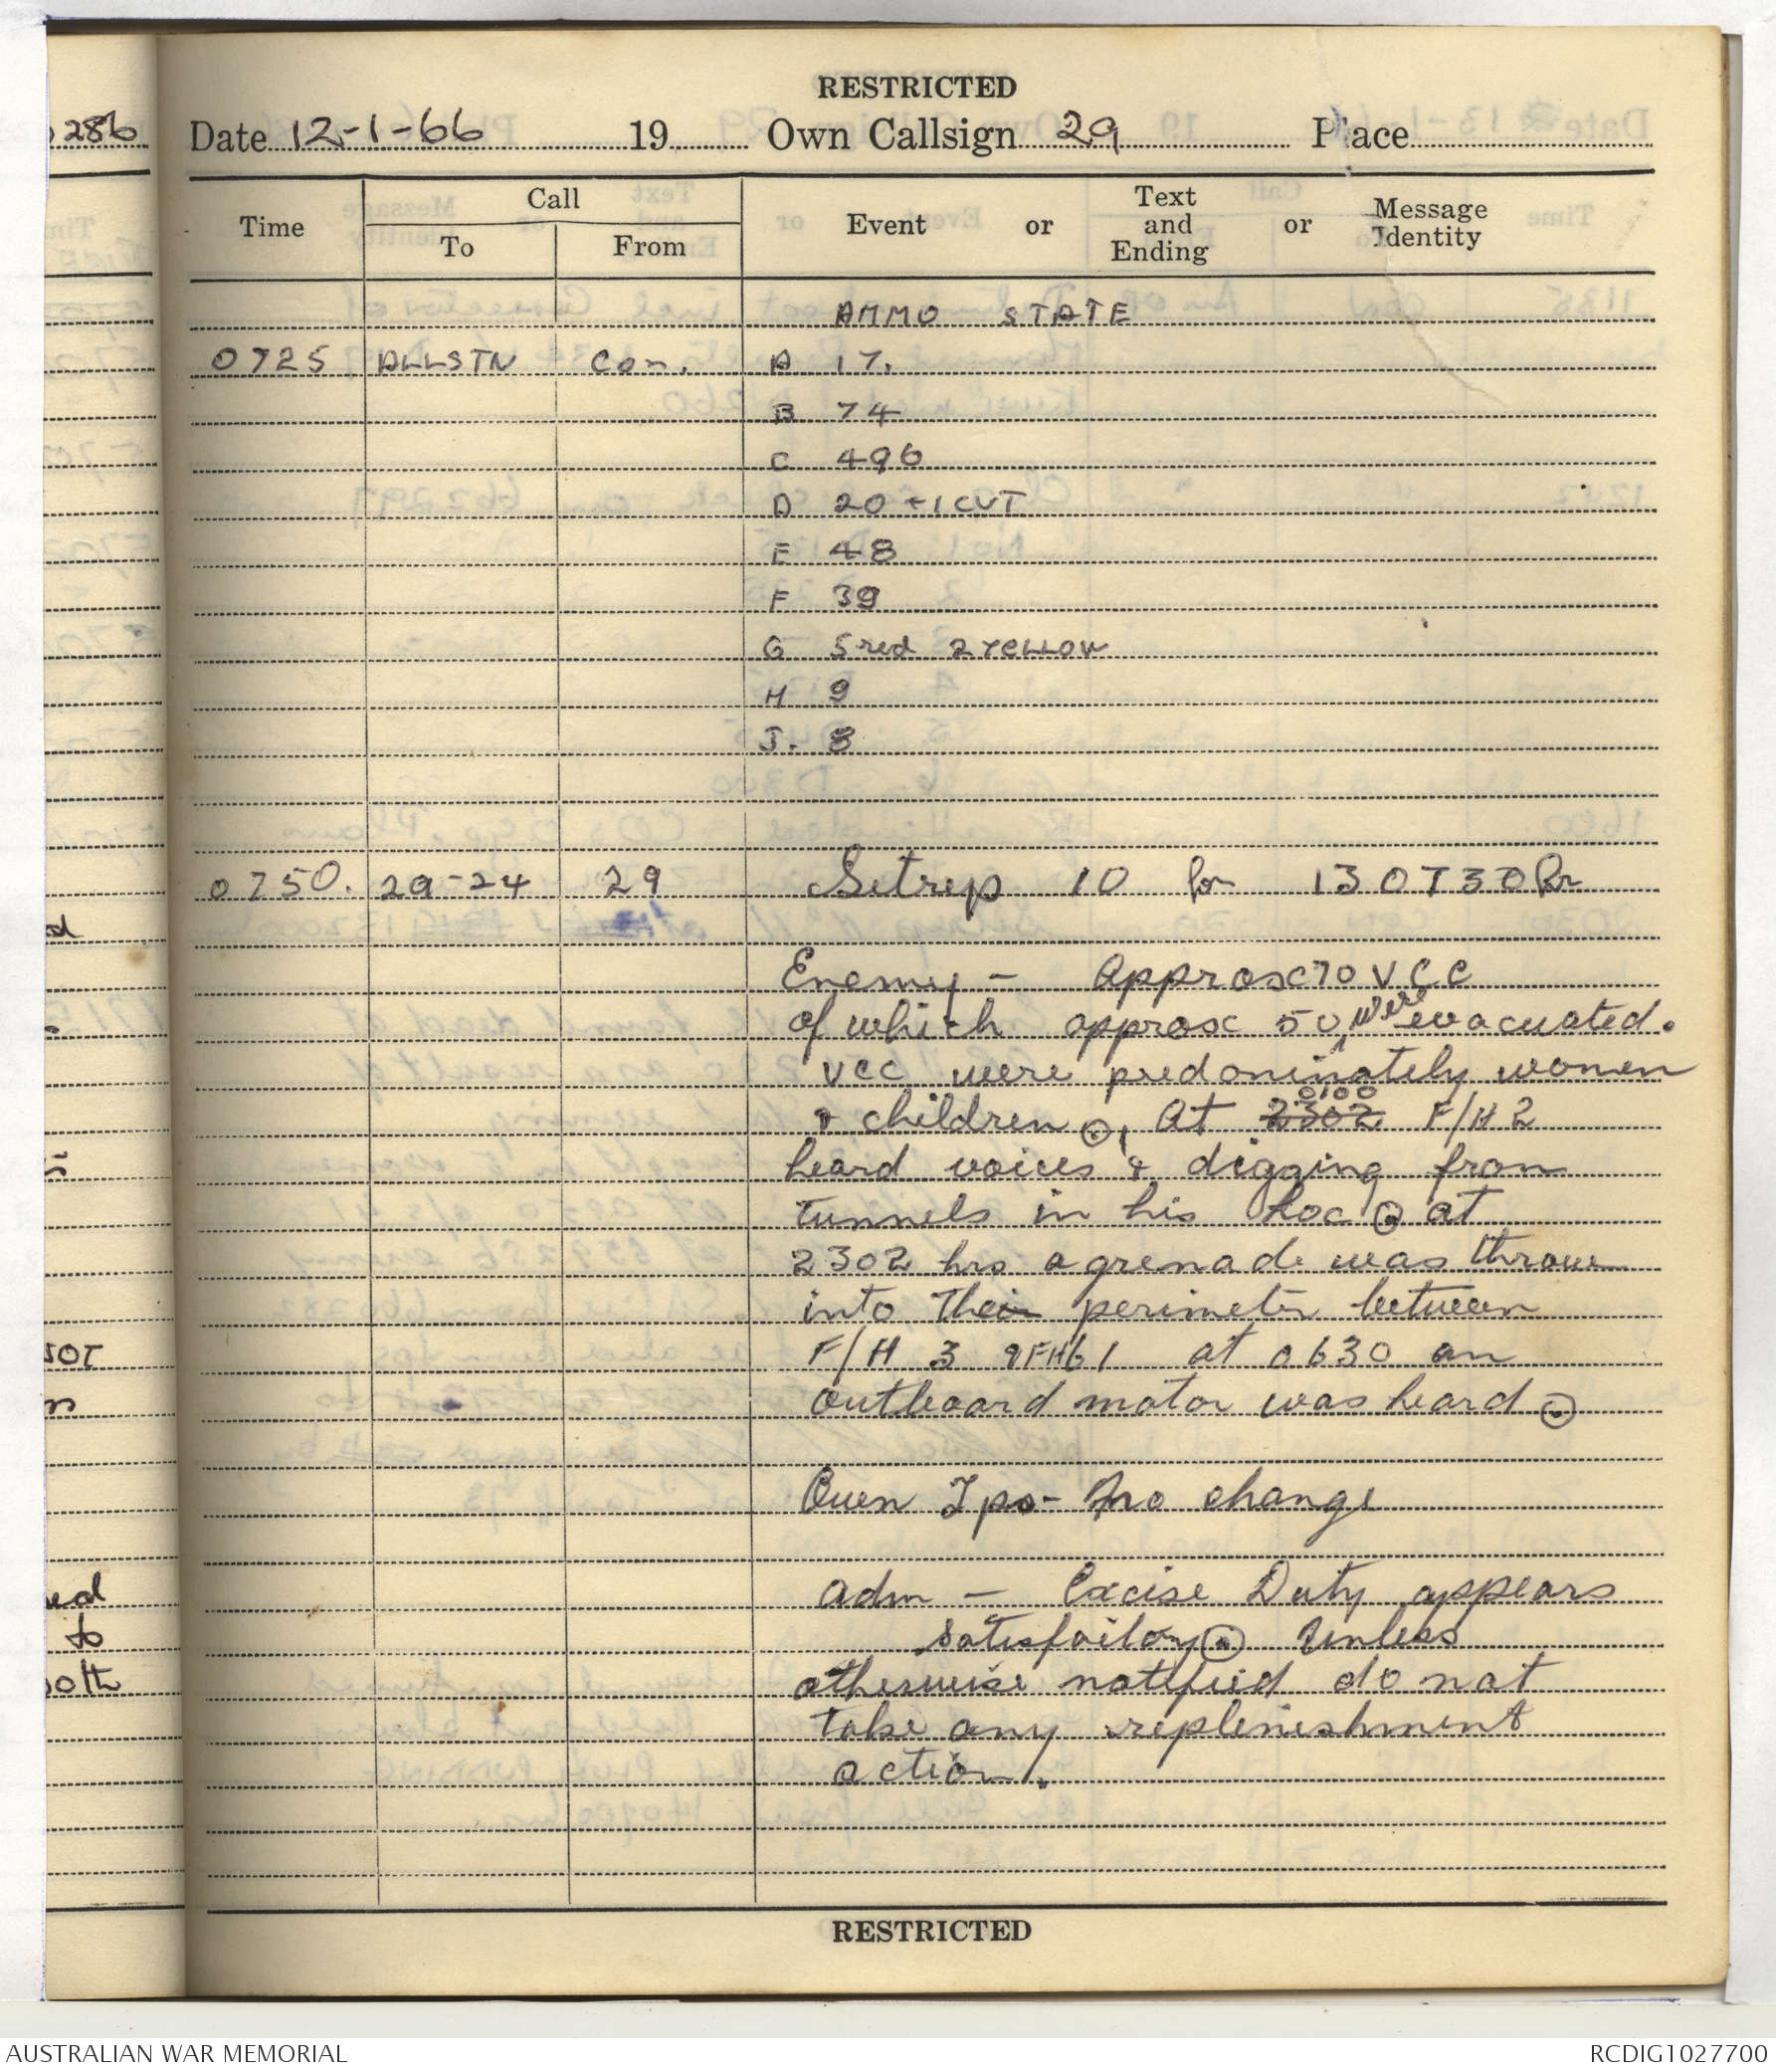 RESTRICTED
286
Date 12-1-66 19 Own Callsign 29 Place
Time Call To From Event or Text and Ending or Message Identity
AMMO STATE
0725 ALLSTN Con. A 17.
B 74
C 496
D 20 + 1 CUT
E 48
F 39
G 5 red 2 YELLOW
H 9
J. 8
0750. 29-24 29 Sitrep 10 for 130730 Hr
Enemy - Approx 70 V C C
of which approx 50 were evacuated.
VCC were predominately women
& children ⊙, At 2302 0100 F/H 2
heard voices & digging from
tunnels in his Loc ⊙ at
2302 hrs a grenade was throwe
into their perimeter between
F/H 3 & FH61 at 0630 an
outboard motor was heard ⊙
Ouen Tps - no change
Adm - Excise Duty appears
satisfactory ⊙ Unless
otherwise notified do not
take any replenishment
action.
RESTRICTED
AUSTRALIAN WAR MEMORIAL
RCDIG1027700